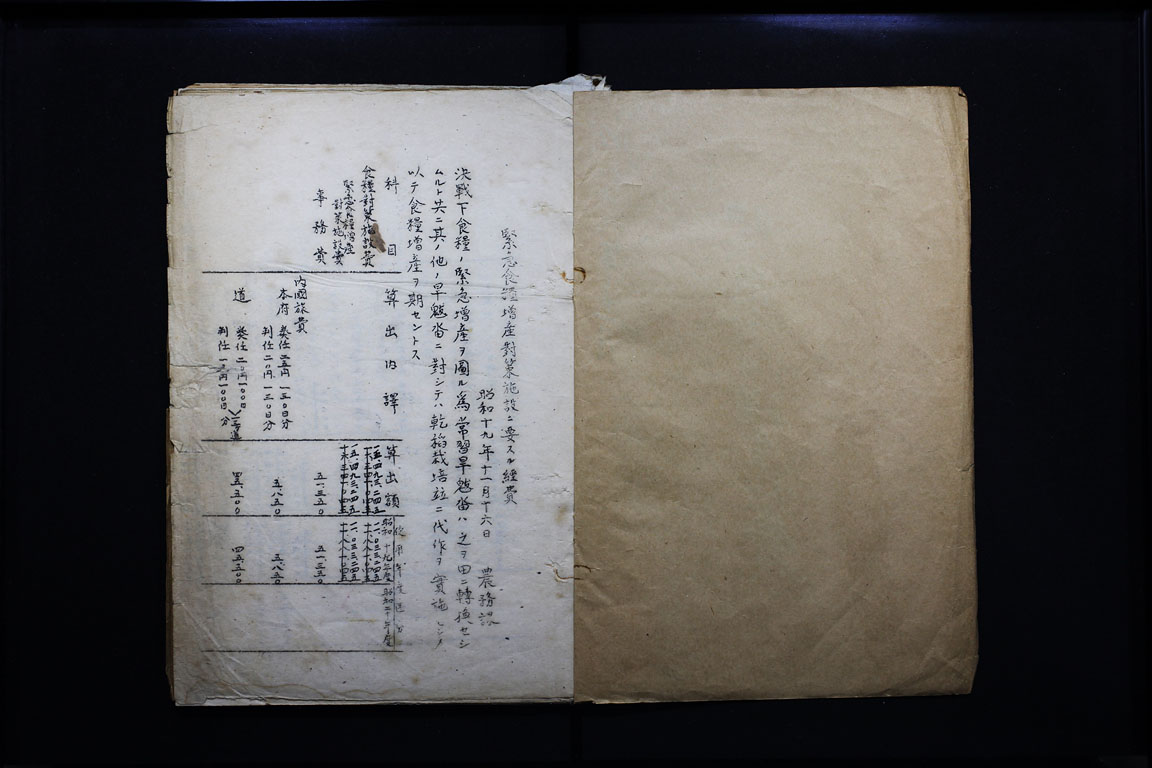 緊急食糧増産對策施設ニ要スル経費
昭和十九年十一月十六日 農務課
決戰下食糧ノ緊急増産ヲ圖ル為常習旱魃畓ハ之ヲ田ニ轉換セシ
ムルト共ニ其ノ他ノ旱魃畓ニ對シテハ乾稻栽培竝ニ代作ヲ實施セシメ
以テ食糧増産ヲ期セントス
科目 算出内譯 算出額 使用年度區分
昭和十九年度 昭和二十年度
食糧對策施設費
緊急食糧増産
對策施設費
事務費 五一、三五〇 五一、三五〇
内國旅費
本府 奏任 二五円 一三〇日分
判任 二〇円 一三〇日分 五、八五〇 五、八五〇
道 奏任 二〇円 一〇〇日
判任 一五円 一〇〇日分 四五、五〇〇 四五、五〇〇